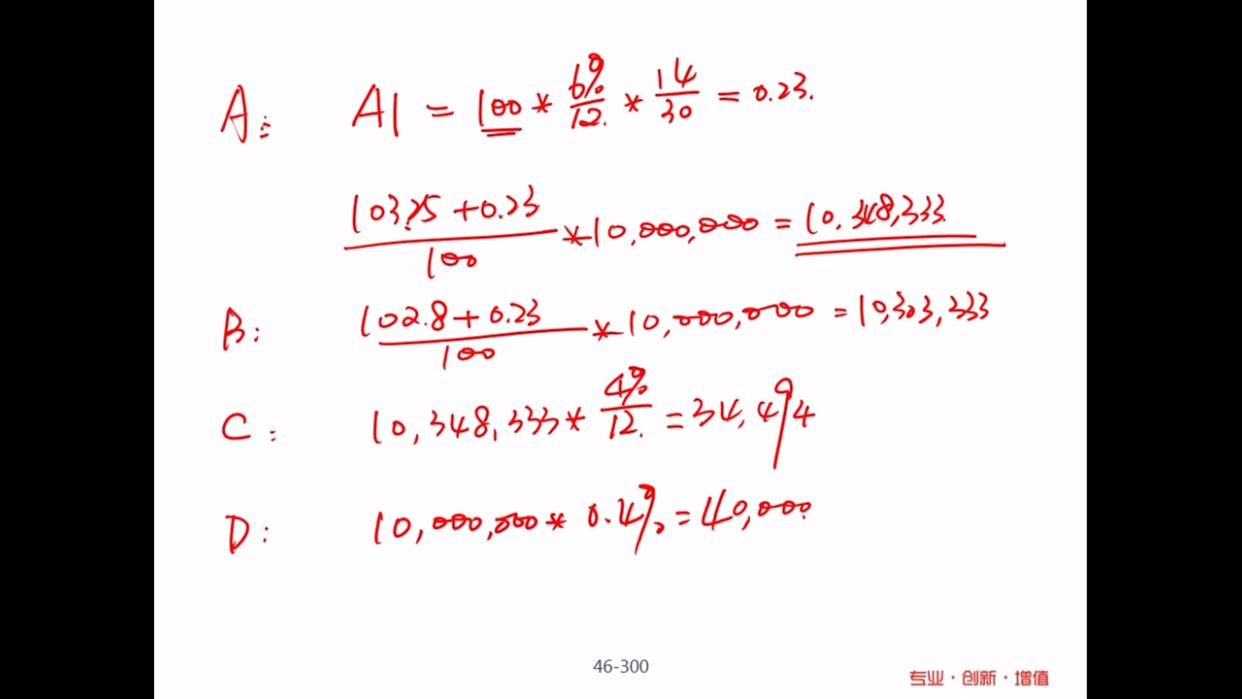 A: AI = 100 * 6%/12. * 14/30 = 0.23.
103.25 + 0.23 / 100 * 10,000,000 = 10,348,333.
B: 102.8 + 0.23 / 100 * 10,000,000 = 10,303,333
C: 10,348,333 * 4%/12. = 34,494
D: 10,000,000 * 0.4% = 40,000
46-300
专业·创新·增值